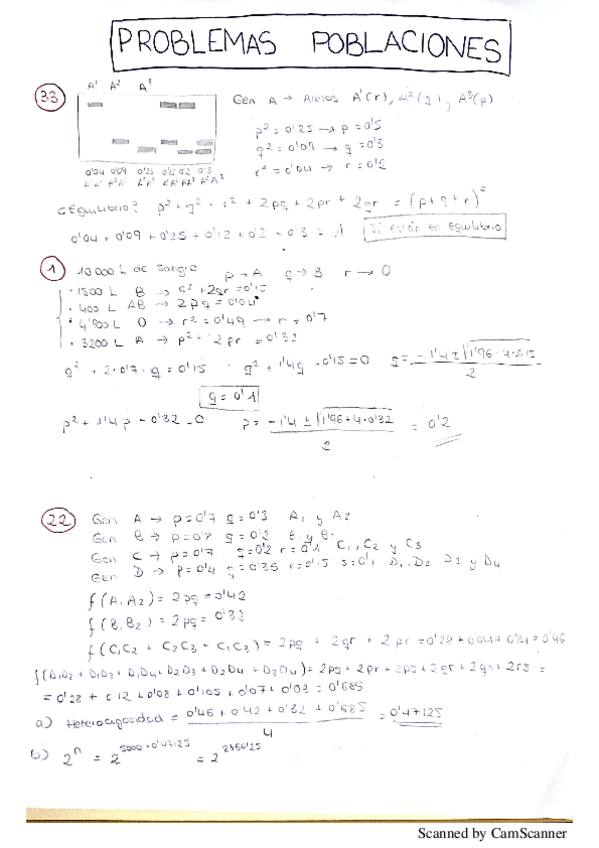 PROBLEMAS POBLACIONES
33
A¹ A² A³
Gen A → Alelos A¹(r), A²(q), A³(p)
p² = 0'25 → p = 0'5
q² = 0'09 → q = 0'3
r² = 0'04 → r = 0'2
0'04 0'09 0'25 0'12 0'2 0'3
¿Equilibrio? p² + q² + r² + 2pq + 2pr + 2qr = (p+q+r)²
0'04 + 0'09 + 0'25 + 0'12 + 0'2 + 0'3 = 1 Si están en equilibrio
1 10 000 L de sangre p → A q → B r → O
1500 L B → q² + 2qr = 0'15
400 L AB → 2pq = 0'04
4'900 L O → r² = 0'49 → r = 0'7
3200 L A → p² + 2pr = 0'32
q² + 2·0'7·q = 0'15 q² + 1'4q - 0'15 = 0
q = 0'1
p² + 1'4p - 0'32 = 0 p = -1'4 ± √1'96+4·0'32 = 0'2
2
22 Gen A → p=0'7 q=0'3 A₁ y A₂
Gen B → q=0'2
Gen C → p=0'7 q=0'2 r=0'1 C₁, C₂ y C₃
Gen D → p=0'4
f(A₁A₂) = 2pq = 0'42
f(B₁B₂) = 2pq = 0'32
f(C₁C₂ + C₂C₃ + C₁C₃) = 2pq + 2qr + 2pr = 0'28 + 0'04 + 0'14 = 0'46
= 0'28 + 0'12 + 0'08 + 0'105 + 0'07 + 0'03 = 0'685
a) Heterocigosidad = 0'46 + 0'42 + 0'32 + 0'685 = 0'47125
4
b) 2ⁿ = 2^5000·0'47125 = 2^2356'25
Scanned by CamScanner